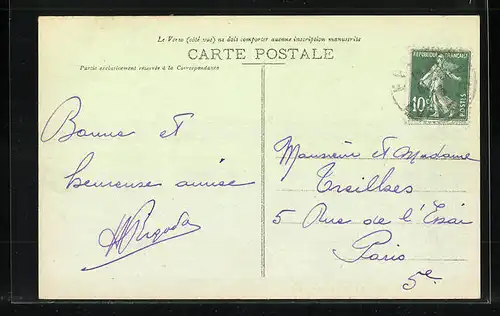 Le Verso (côté vue) ne doit comporter aucune inscription manuscrite
CARTE POSTALE
Partie exclusivement réservée à la Correspondance
RÉPUBLIQUE FRANÇAISE
10c
POSTES
Bonne et
heureuse année
Monsieur et Madame
Treilhes
5 Rue de l'Essai
Paris
5e